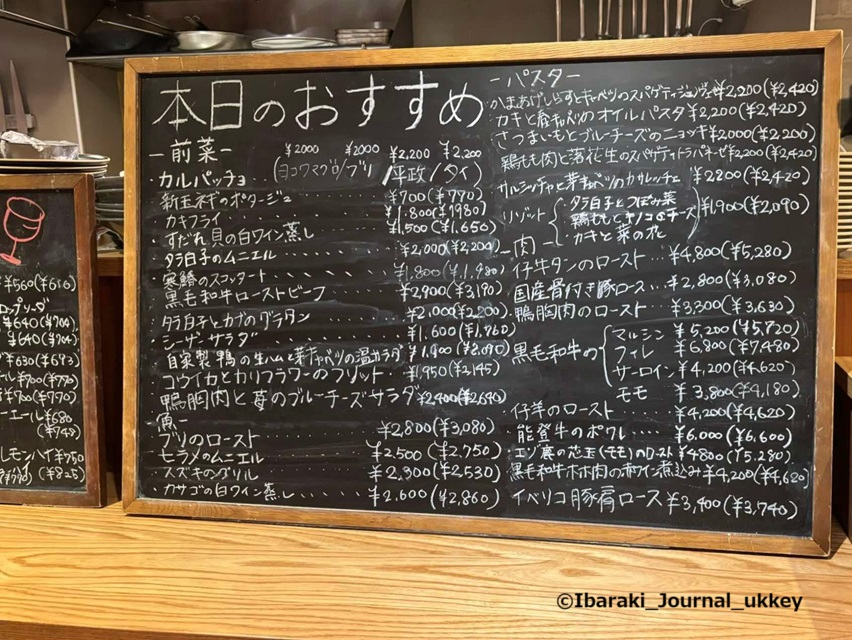 本日のおすすめ
-前菜-
¥2000 ¥2000 ¥2,200 ¥2,200
・カルパッチョ (ヨコワマグロ/ブリ/平政/タイ)
新玉ネギのポタージュ ¥700(¥770)
カキフライ ¥1,800(¥1980)
すだれ貝の白ワイン蒸し ¥1,500(¥1,650)
タラ白子のムニエル ¥2,000(¥2,200)
寒鰆のスコッタート ¥1,800(¥1,980)
黒毛和牛ローストビーフ ¥2,900(¥3,190)
タラ白子とカブのグラタン ¥2,000(¥2,200)
シーザーサラダ ¥1,600(¥1,760)
自家製鴨の生ハムと芽キャベツの温サラダ ¥1,900(¥2,090)
コウイカとカリフラワーのフリット ¥1,950(¥2,145)
鴨胸肉と苺のブルーチーズサラダ ¥2,400(¥2,640)
魚-
ブリのロースト ¥2,800(¥3,080)
ヒラメのムニエル ¥2,500(¥2,750)
スズキのグリル ¥2,300(¥2,530)
カサゴの白ワイン蒸し ¥2,600(¥2,860)
-パスター
かまあげしらすとキャベツのスパゲティ ¥2,200(¥2,420)
カキと春キャベツのオイルパスタ ¥2,200(¥2,420)
さつまいもとブルーチーズのニョッキ ¥2000(¥2,200)
鶏もも肉と落花生のスパゲティトラパネーゼ ¥2,200(¥2,420)
サルシッチャと芽キャベツのカサレッチェ ¥2200(¥2,420)
リゾット
タラ白子とつぼみ菜
鶏ももとキノコとチーズ
カキと菜の花
¥1,900(¥2,090)
-肉-
仔牛タンのロースト ¥4,800(¥5,280)
国産骨付き豚ロース ¥2,800(¥3,080)
鴨胸肉のロースト ¥3,300(¥3,630)
黒毛和牛の
マルシン ¥5,200(¥5,720)
フィレ ¥6,800(¥7,480)
サーロイン ¥4,200(¥4,620)
モモ ¥3,800(¥4,180)
仔羊のロースト ¥4,200(¥4,620)
能登牛のポワレ ¥6,000(¥6,600)
エゾ鹿の芯玉(モモ)のロースト ¥4800(¥5,280)
黒毛和牛ホホ肉の赤ワイン煮込み ¥4,200(¥4,620)
イベリコ豚肩ロース ¥3,400(¥3,740)
¥560(¥616)
¥640(¥704)
¥640(¥704)
¥630(¥693)
¥700(¥770)
¥700(¥770)
ーエール ¥680
(¥748)
レモンハイ ¥750
(¥825)
©Ibaraki_Journal_ukkey